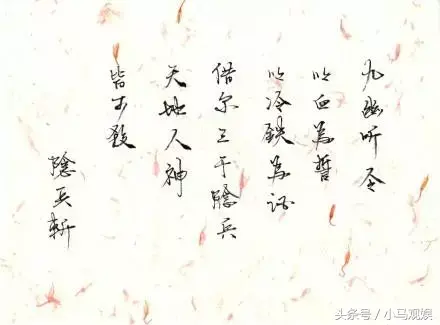 九幽听令
以血為誓
以冷鉄為证
借尔三千陰兵
天地人神
皆可殺
陰兵斬
头条号 / 小马观娱